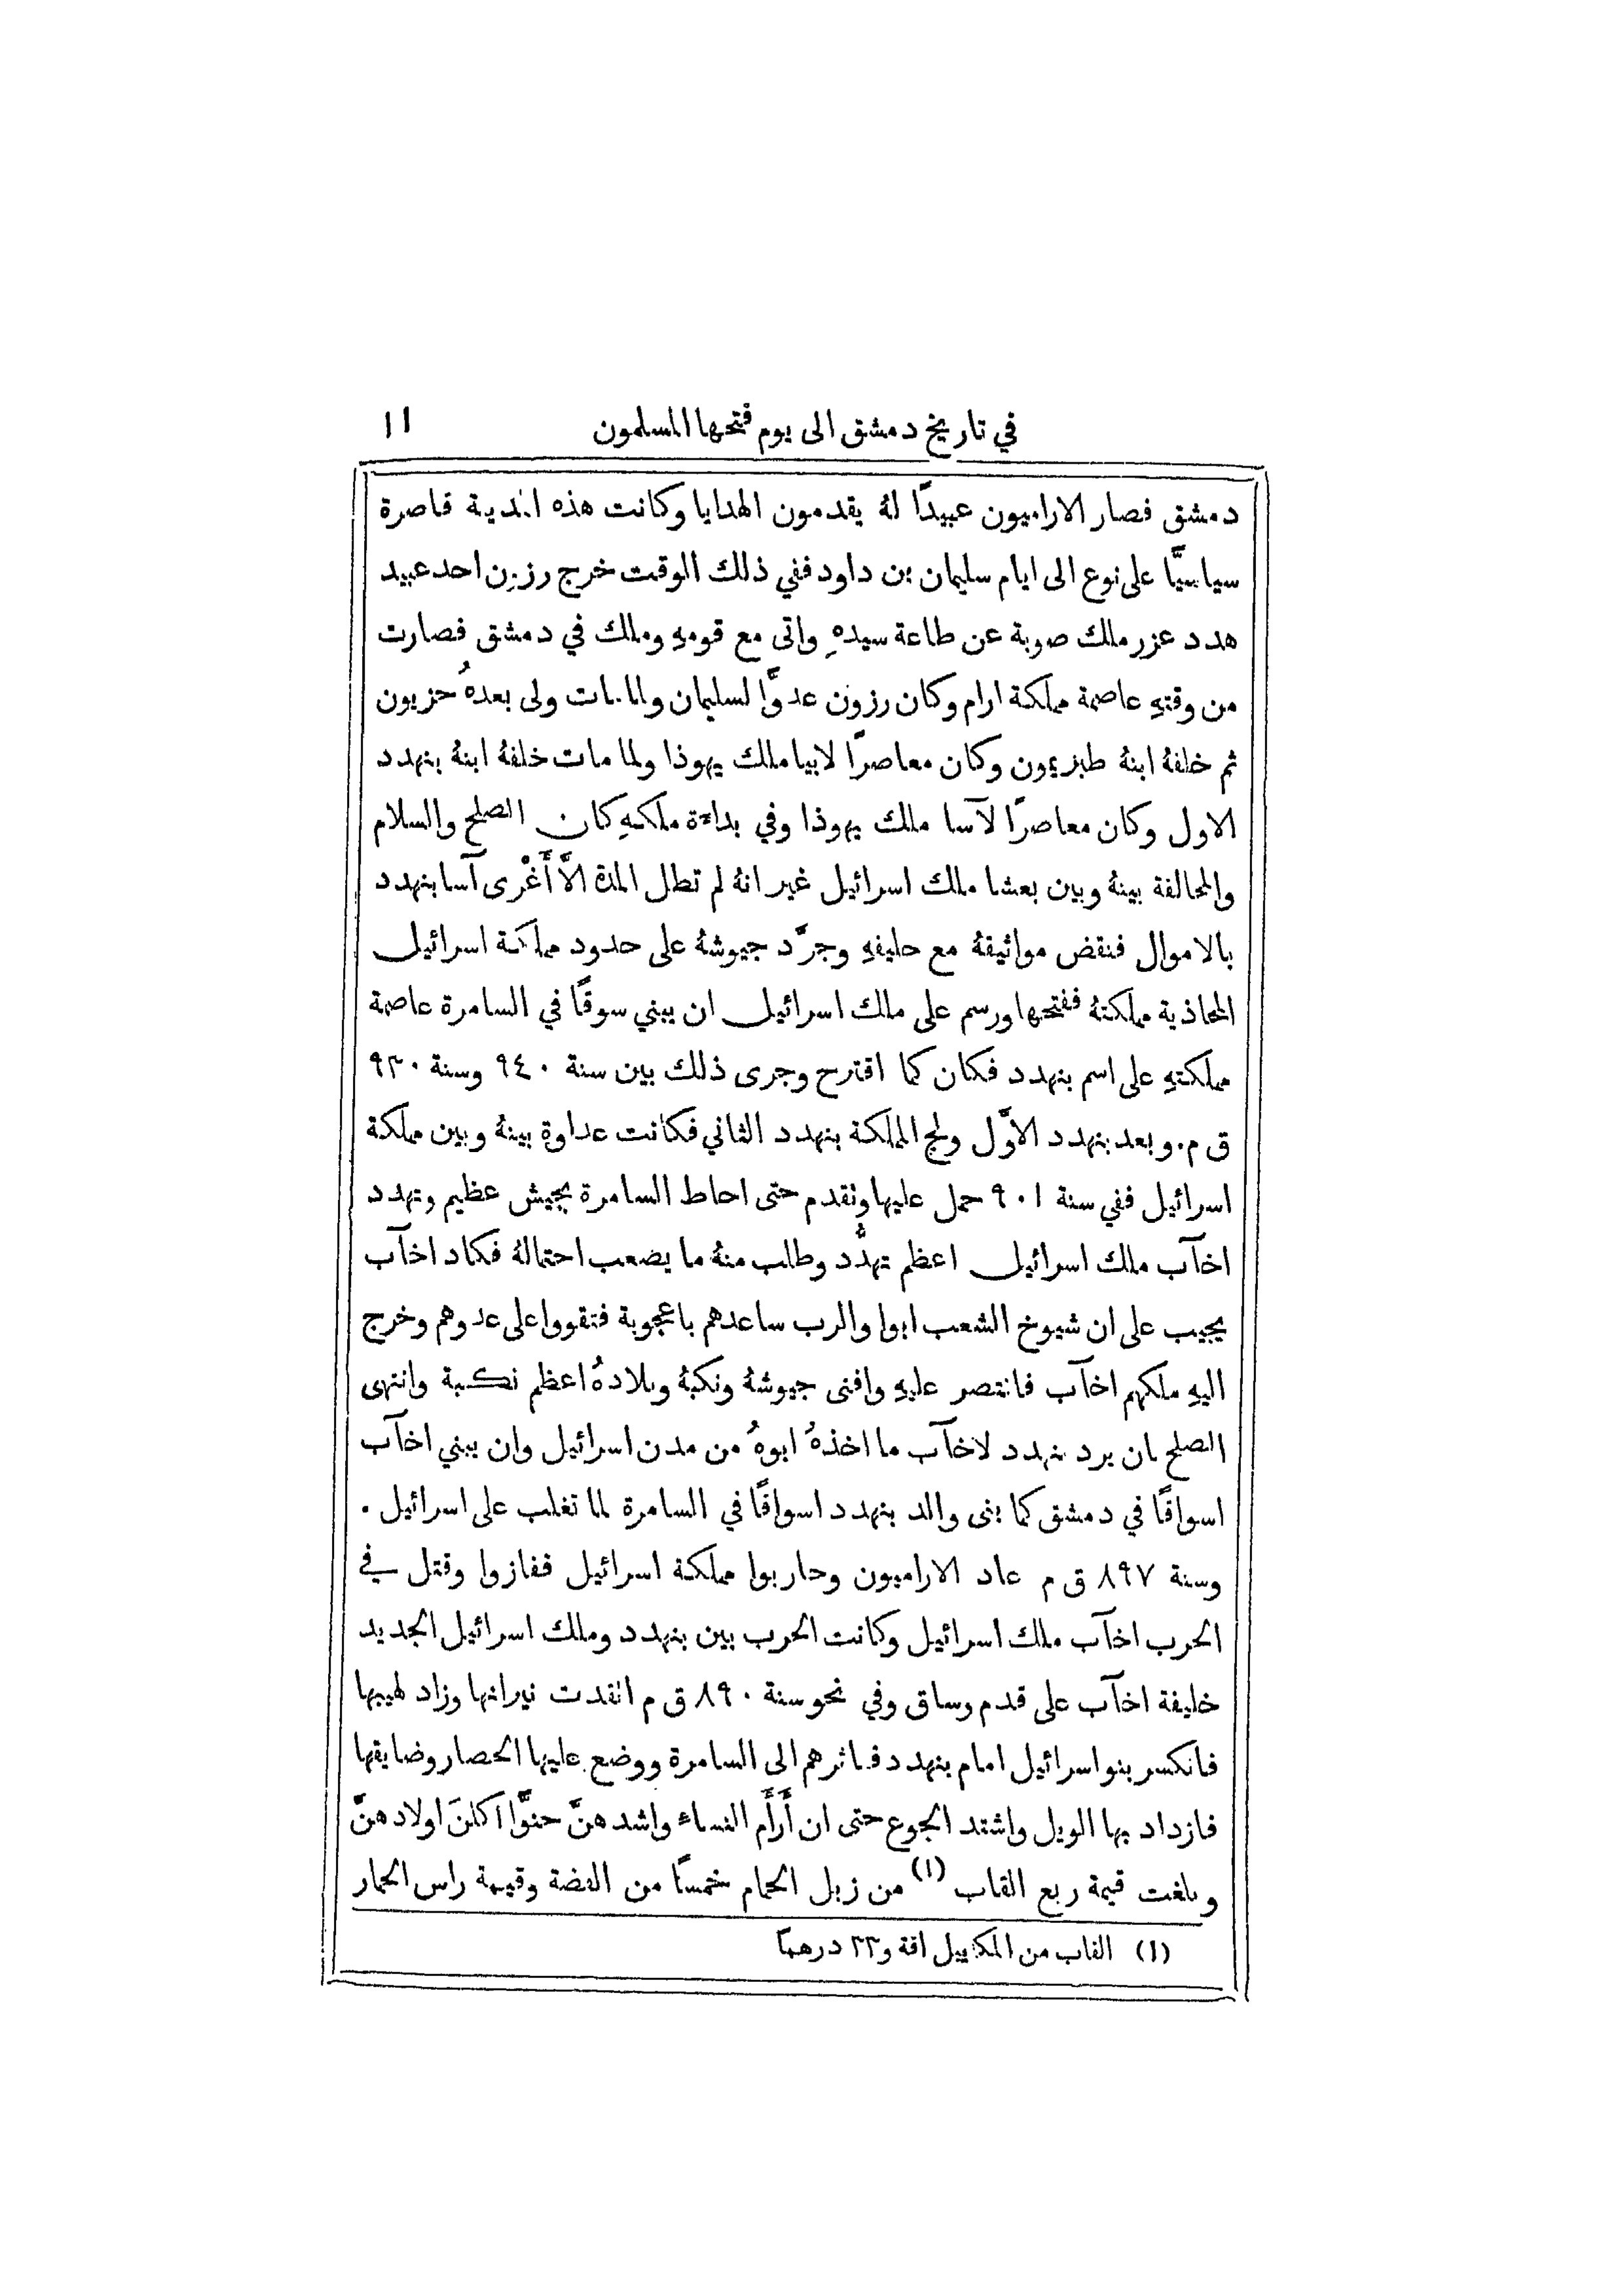 في تاريخ دمشق الى يوم فتحها المسلمون ١١
دمشق فصار الاراميون عبيدًا لهُ يقدمون الهدايا وكانت هذه المدينة قاصرة
سياسيًّا على نوع الى ايام سليمان بن داود ففي ذلك الوقت خرج رزين احد عبيد
هدد عزر ملك صوبة عن طاعة سيدهِ واتى مع قومهِ وملك في دمشق فصارت
من وقتهِ عاصمة مملكة ارام وكان رزون عدوًّا لسليمان ولما مات ولى بعدهُ حزيون
ثم خلفهُ ابنهُ طبريمون وكان معاصرًا لابيا ملك يهوذا ولما مات خلفهُ ابنهُ بنهدد
الاول وكان معاصرًا لآسا ملك يهوذا وفي بداءة ملكهِ كان الصلح والسلام
والمحالفة بينهُ وبين بعشا ملك اسرائيل غير انهُ لم تطل المدة الَّا أَغْرى آسا بنهدد
بالاموال فنقض مواثيقهُ مع حليفهِ وجرَّد جيوشهُ على حدود مملكة اسرائيل
المحاذية مملكتهُ ففتحها ورسم على ملك اسرائيل ان يبني سوقًا في السامرة عاصمة
مملكتهِ على اسم بنهدد فكان كما اقترح وجرى ذلك بين سنة ٩٤٠ وسنة ٩٣٠
ق م. وبعد بنهدد الاوَّل ولج المملكة بنهدد الثاني فكانت عداوة بينهُ وبين مملكة
اسرائيل ففي سنة ٩٠١ حمل عليها وتقدم حتى احاط السامرة بجيش عظيم وتهدد
اخآب ملك اسرائيل اعظم تهدُّد وطلب منهُ ما يصعب احتمالهُ فكاد اخآب
يجيب على ان شيوخ الشعب ابوا والرب ساعدهم باعجوبة فتقووا على عدوهم وخرج
اليهِ ملكهم اخآب فانتصر عليهِ وافنى جيوشهُ ونكبهُ وبلادهُ اعظم نكبة وانتهى
الصلح بان يرد بنهدد لاخآب ما اخذهُ ابوهُ من مدن اسرائيل وان يبني اخآب
اسواقًا في دمشق كما بنى والد بنهدد اسواقًا في السامرة لما تغلب على اسرائيل .
وسنة ٨٩٧ ق م عاد الاراميون وحاربوا مملكة اسرائيل ففازوا وقتل في
الحرب اخآب ملك اسرائيل وكانت الحرب بين بنهدد وملك اسرائيل الجديد
خليفة اخآب على قدم وساق وفي نحو سنة ٨٩٠ ق م اتقدت نيرانها وزاد لهيبها
فانكسر بنو اسرائيل امام بنهدد فاثرهم الى السامرة ووضع عليها الحصار وضايقها
فازداد بها الويل واشتد الجوع حتى ان أَرأَم النساء واشدهنَّ حنوًّا اكلنَ اولادهنَّ
وبلغت قيمة ربع القاب (١) من زبل الحمام خمسًا من الفضة وقيمة راس الحمار
(١) القاب من المكاييل اقة و٢٢ درهمًا